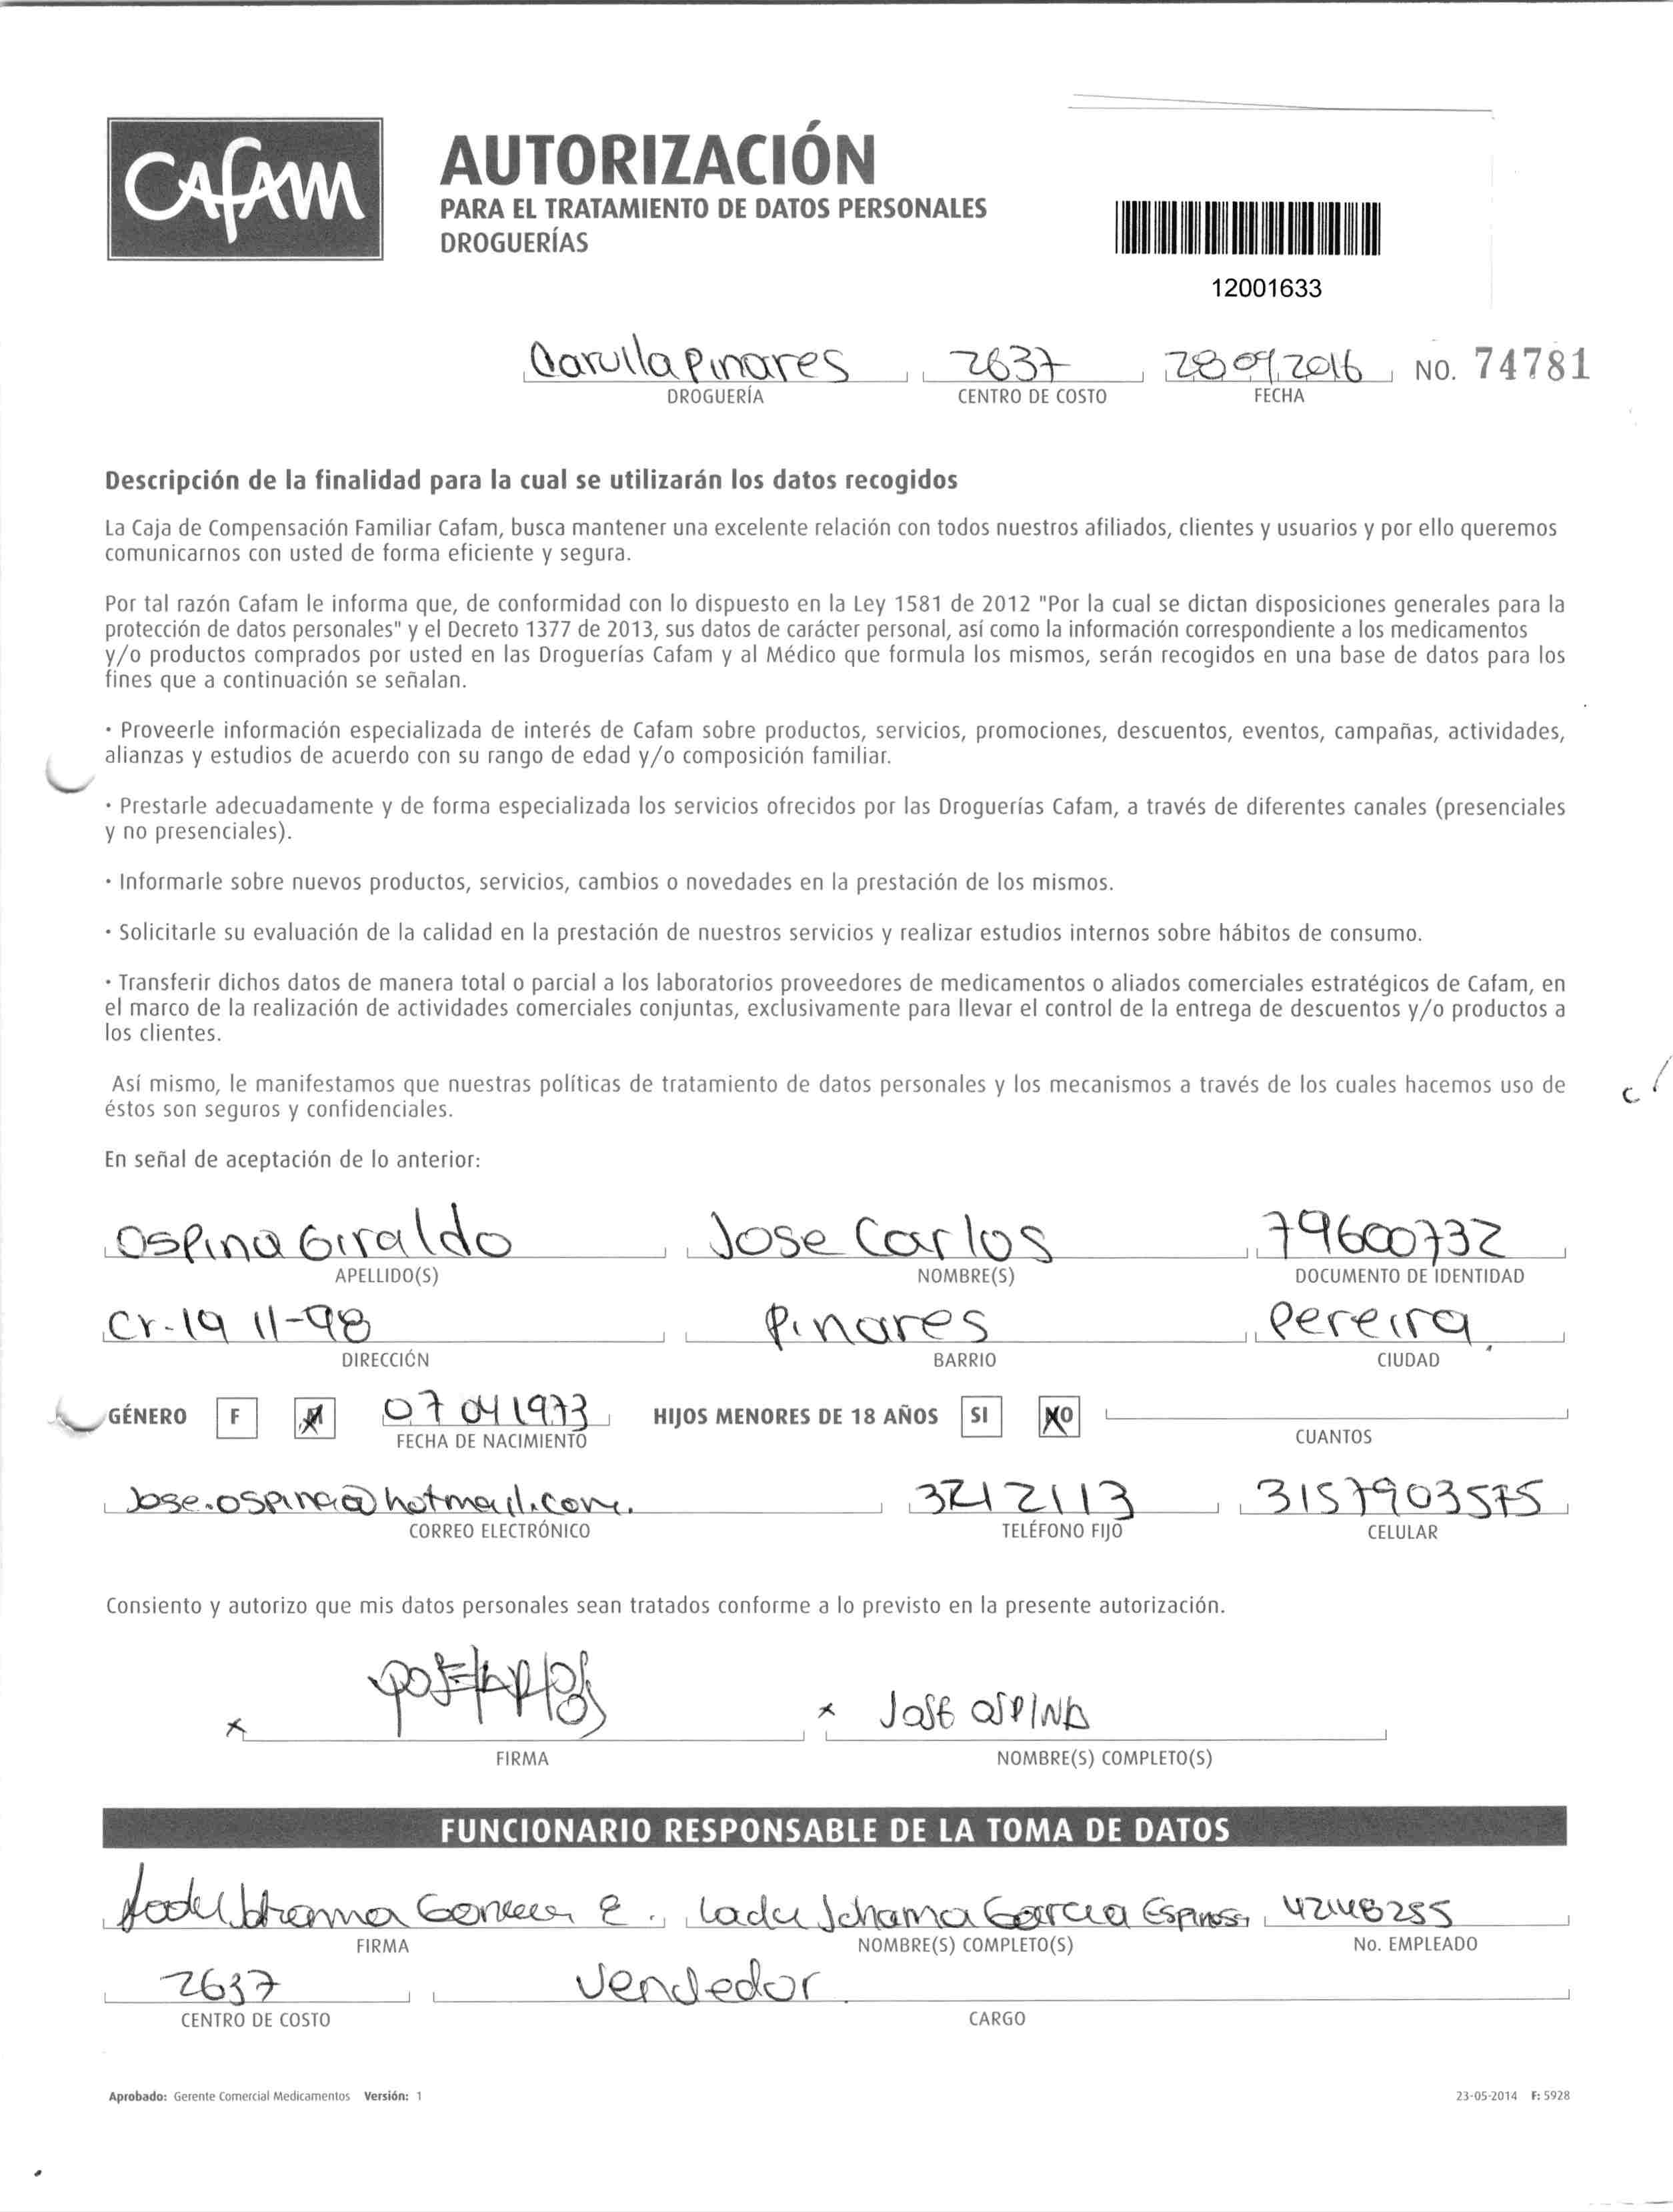 CAFAM
AUTORIZACIÓN
PARA EL TRATAMIENTO DE DATOS PERSONALES
DROGUERÍAS
12001633
Carulla Pinares 2637 28 09 2016 NO. 74781
DROGUERÍA CENTRO DE COSTO FECHA
Descripción de la finalidad para la cual se utilizarán los datos recogidos
La Caja de Compensación Familiar Cafam, busca mantener una excelente relación con todos nuestros afiliados, clientes y usuarios y por ello queremos
comunicarnos con usted de forma eficiente y segura.
Por tal razón Cafam le informa que, de conformidad con lo dispuesto en la Ley 1581 de 2012 "Por la cual se dictan disposiciones generales para la
protección de datos personales" y el Decreto 1377 de 2013, sus datos de carácter personal, así como la información correspondiente a los medicamentos
y/o productos comprados por usted en las Droguerías Cafam y al Médico que formula los mismos, serán recogidos en una base de datos para los
fines que a continuación se señalan.
· Proveerle información especializada de interés de Cafam sobre productos, servicios, promociones, descuentos, eventos, campañas, actividades,
alianzas y estudios de acuerdo con su rango de edad y/o composición familiar.
· Prestarle adecuadamente y de forma especializada los servicios ofrecidos por las Droguerías Cafam, a través de diferentes canales (presenciales
y no presenciales).
· Informarle sobre nuevos productos, servicios, cambios o novedades en la prestación de los mismos.
· Solicitarle su evaluación de la calidad en la prestación de nuestros servicios y realizar estudios internos sobre hábitos de consumo.
· Transferir dichos datos de manera total o parcial a los laboratorios proveedores de medicamentos o aliados comerciales estratégicos de Cafam, en
el marco de la realización de actividades comerciales conjuntas, exclusivamente para llevar el control de la entrega de descuentos y/o productos a
los clientes.
Así mismo, le manifestamos que nuestras políticas de tratamiento de datos personales y los mecanismos a través de los cuales hacemos uso de
éstos son seguros y confidenciales.
En señal de aceptación de lo anterior:
Ospina Giraldo Jose Carlos 79600732
APELLIDO(S) NOMBRE(S) DOCUMENTO DE IDENTIDAD
Cr-19 11-98 Pinares Pereira.
DIRECCIÓN BARRIO CIUDAD
GÉNERO F M 07 04 1973 HIJOS MENORES DE 18 AÑOS SI NO
FECHA DE NACIMIENTO CUANTOS
Jose.ospina@hotmail.com. 3212113 3157903575
CORREO ELECTRÓNICO TELÉFONO FIJO CELULAR
Consiento y autorizo que mis datos personales sean tratados conforme a lo previsto en la presente autorización.
x x JOSE OSPINA
FIRMA NOMBRE(S) COMPLETO(S)
FUNCIONARIO RESPONSABLE DE LA TOMA DE DATOS
Garcia Espinosa 42148255
FIRMA NOMBRE(S) COMPLETO(S) No. EMPLEADO
2637 Vendedor
CENTRO DE COSTO CARGO
Aprobado: Gerente Comercial Medicamentos Versión: 1 23-05-2014 F: 5928